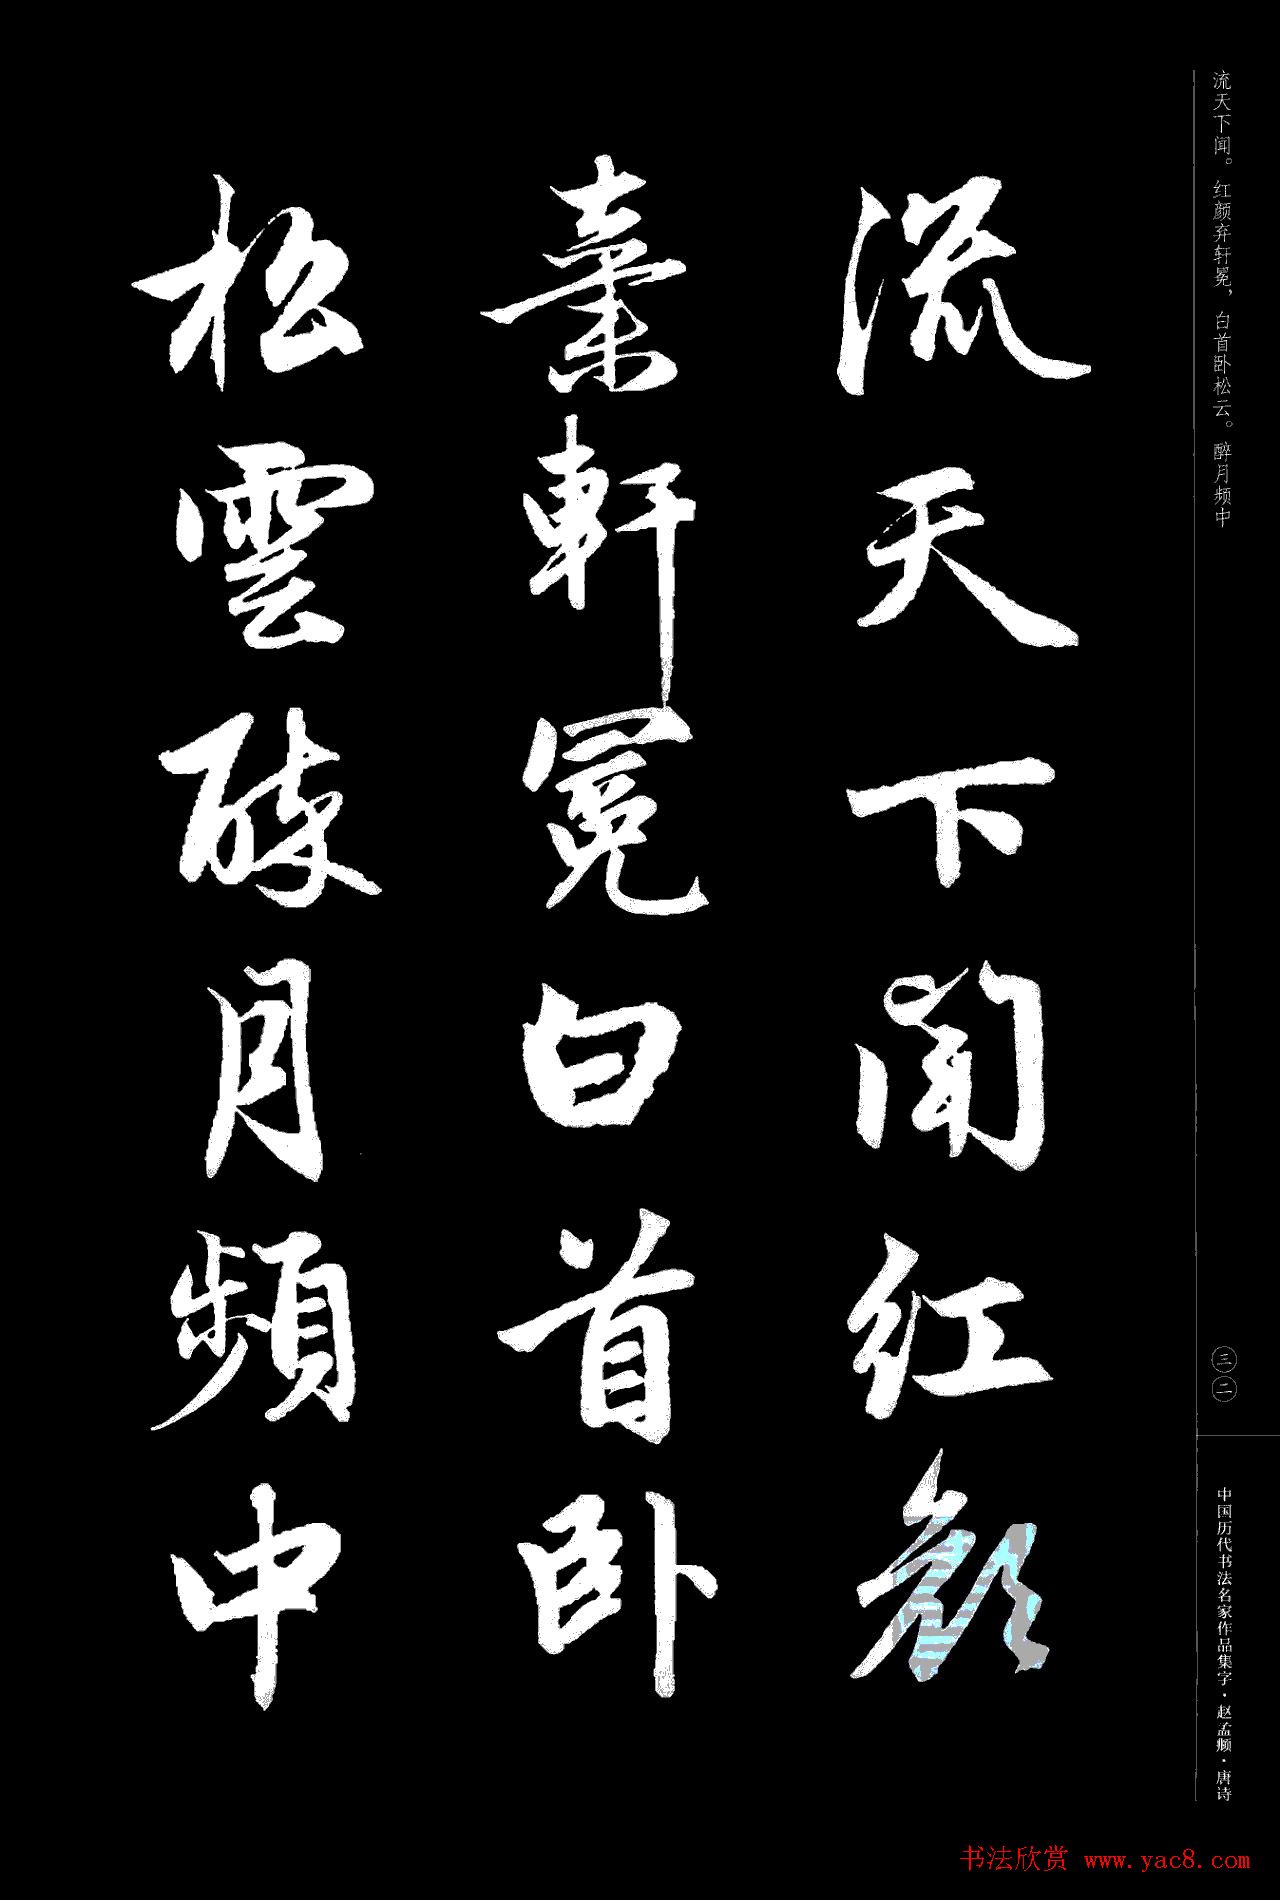 流天下闻。红颜弃轩冕，白首卧松云。醉月频中
流天下聞红顔
棄軒冕白首卧
松雲醉月頻中
三二
中国历代书法名家作品集字·赵孟頫·唐诗
书法欣赏 www.yac8.com